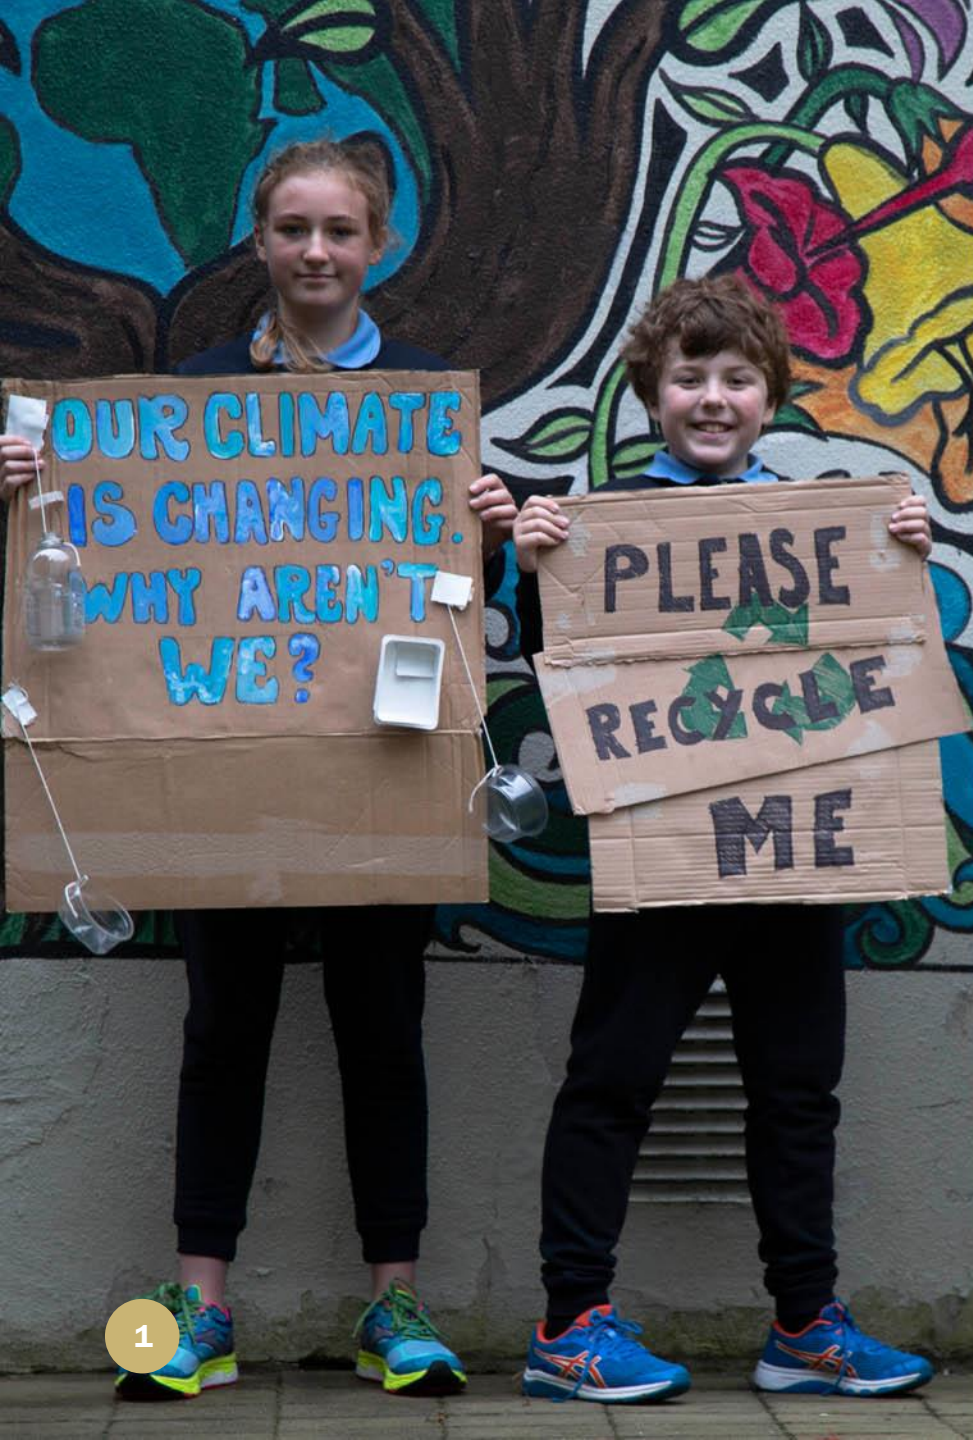 OUR CLIMATE
IS CHANGING.
WHY AREN'T
WE?
PLEASE
RECYCLE
ME
1